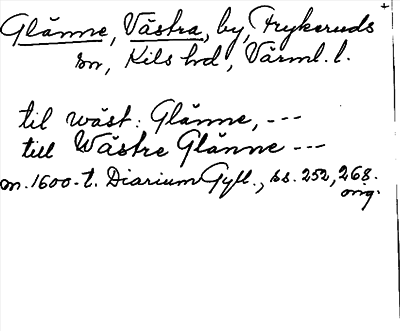 Glänne, Västra, by, Frykeruds
sn, Kils hd, Värml. l.
til wäst: Glänne, ---
till Wästre Glänne ---
m. 1600-t. Diarium Gyll., ss. 252, 268.
orig.